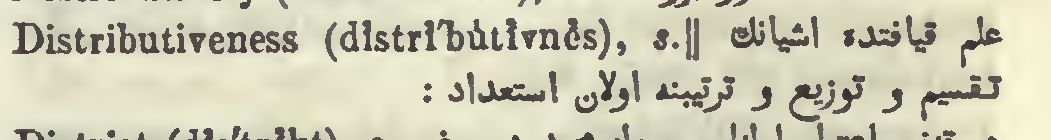 Distributiveness (dĭstrĭ´bùtĭvnĕs), s.‖ علم قیافتده اشیانك
تقسیم و توزیع و ترتیبنه اولان استعداد :